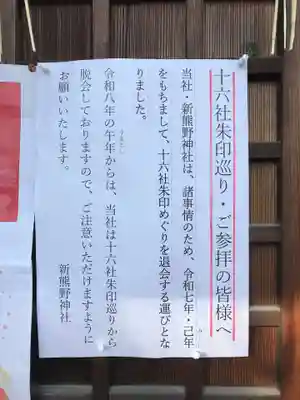 十六社朱印巡り・ご参拝の皆様へ
当社・新熊野神社は、諸事情のため、令和七年・己年
をもちまして、十六社朱印めぐりを退会する運びとな
りました。
令和八年の午年からは、当社は十六社朱印巡りから
脱会しておりますので、ご注意いただけますように
お願いいたします。
新熊野神社